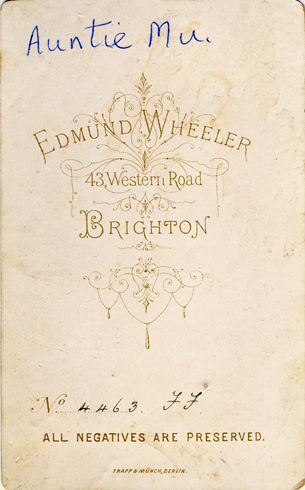 Auntie Mu.
EDMUND WHEELER
43, Western Road
BRIGHTON
No 4463. FF
ALL NEGATIVES ARE PRESERVED.
TRAPP & MÜNCH, BERLIN.